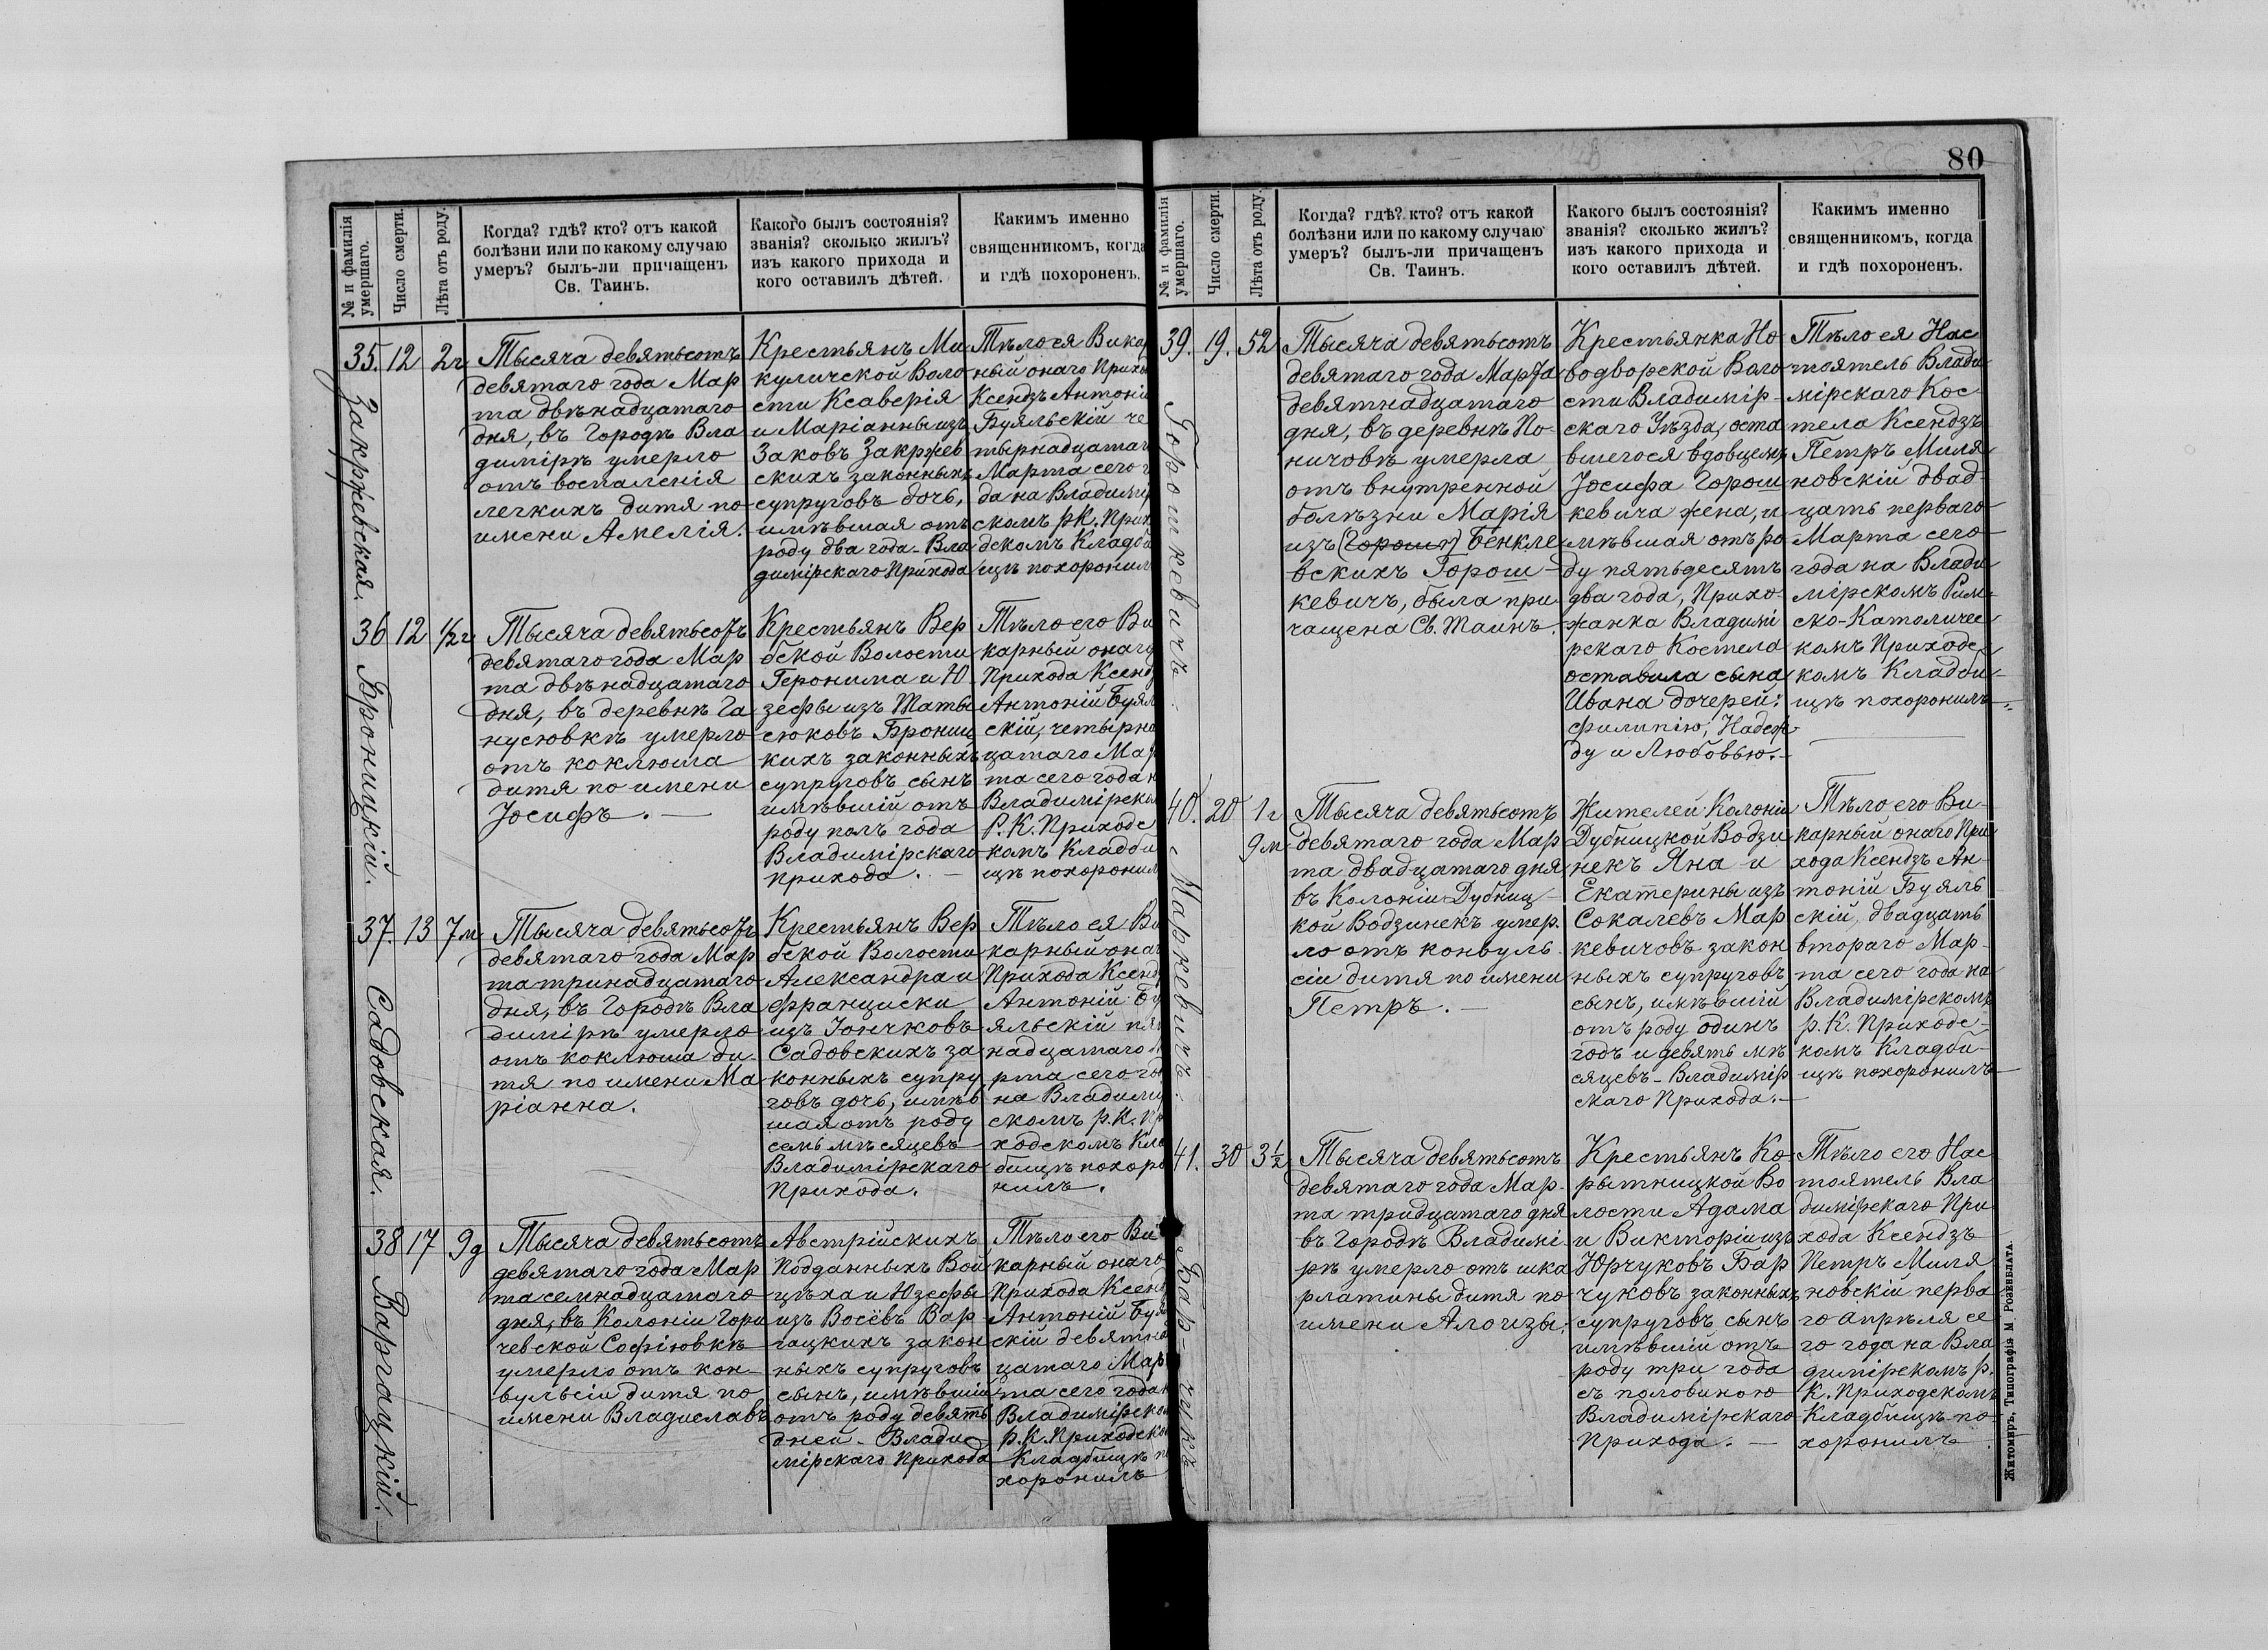 80
№ и фамилія
умершаго.
Число смерти.
Лѣта отъ роду.
Когда? гдѣ? кто? отъ какой
болѣзни или по какому случаю
умеръ? былъ-ли причащенъ
Св. Таинъ.
Какого былъ состоянія?
званія? сколько жилъ?
изъ какого прихода и
кого оставилъ дѣтей.
Какимъ именно
священникомъ, когда
и гдѣ похороненъ.
35.
Закржевская.
12
2г
Тысяча девятьсотъ
девятаго года Мар
та двѣнадцатаго
дня, въ Городѣ Вла
димірѣ умерло
отъ воспаленія
легкихъ дитя по
имени Амелія.
Крестьянъ Ми
куличской Воло
сти Ксаверія
и Маріанны изъ
Заковъ Закржев
скихъ законныхъ
супруговъ дочь,
имѣвшая отъ
роду два года - Вла
димірскаго Прихода
Тѣло ея Викар
ный онаго Прихо
Ксендзъ Антоній
Буяльскій че
тырнадцатаго
Марта сего г
да на Владимір
скомъ р.К. Прих
дскомъ Кладби
щѣ похоронил
36
Броницкій.
12
1/2г
Тысяча девятьсотъ
девятаго года Мар
та двѣнадцатаго
дня, въ деревнѣ Га
нусювкѣ умерло
отъ коклюша
дитя по имени
Іосифъ.
Крестьянъ Вер
бской Волости
Геронима и Ю
зефы изъ Маты
сюковъ Брониц
кихъ законныхъ
супруговъ сынъ
имѣвшій отъ
роду полъ года
Владимірскаго
прихода.
Тѣло его Ви
карный онаго
Прихода Ксендз
Антоній Буял
скій, четырна
цатаго Мар
та сего года н
Владимірско
Р. К. Приходс
комъ Кладби
щѣ похоронил
37.
Садовская.
13
7м
Тысяча девятьсотъ
девятаго года Мар
та тринадцатаго
дня, въ Городѣ Вла
димірѣ умерло
отъ коклюша ди
тя по имени Ма
ріанна.
Крестьянъ Вер
бской Волости
Александра и
Франциски
изъ Іончковъ
Садовскихъ за
конныхъ супру
говъ дочь, имѣв
шая отъ роду
семь мѣсяцевъ
Владимірскаго
Прихода.
Тѣло ея Ви
карный онаг
Прихода Ксенд
Антоній Бу
яльскій пят
надцатаго М
рта сего го
на Владимі
скомъ р.К. Пр
ходскомъ Кла
бищѣ похоро
нилъ.
38
Варгацкій.
17
9д
Тысяча девятьсотъ
девятаго года Мар
та семнадцатаго
дня, въ Колоніи Гори
чевской Софіювкѣ
умерло отъ кон
вульсіи дитя по
имени Владиславъ
Австрійскихъ
Подданныхъ Вой
цѣха и Юзефы
изъ Восёвъ Вар
гацкихъ закон
ныхъ супруговъ
сынъ, имѣвшій
отъ роду девять
дней - Влади
мірскаго Прихода
Тѣло его Ви
карный онаго
Прихода Ксенд
Антоній Буял
скій девятна
цатаго Мар
та сего года н
Владимірско
р.К. Приходско
Кладбищѣ по
хоронилъ
№ и фамилія
умершаго.
Число смерти.
Лѣта отъ роду.
Когда? гдѣ? кто? отъ какой
болѣзни или по какому случаю
умеръ? былъ-ли причащенъ
Св. Таинъ.
Какого былъ состоянія?
званія? сколько жилъ?
изъ какого прихода и
кого оставилъ дѣтей.
Какимъ именно
священникомъ, когда
и гдѣ похороненъ.
39.
Горошкевичъ.
19.
52
Тысяча девятьсотъ
девятаго года Марта
девятнадцатаго
дня, въ деревнѣ По-
ничовѣ умерла
отъ внутренной
болѣзни Марія
изъ (Горош) Бенкле
вскихъ Горош-
кевичъ, была при
чащена Св. Таинъ.
Крестьянка Но
водворской Воло
сти Владимір-
скаго Уѣзда, оста
вшегося вдовцемъ
Іосифа Горош
кевича жена, и
мѣвшая отъ ро
ду пятьдесятъ
два года, Прихо
жанка Владимі
рскаго Костела
оставила сына
Ивана дочерей:
Филипію, Надеж-
ду и Любовью.-
Тѣло ея Нас
тоятель Влади
мірскаго Кос-
тела Ксендзъ
Петръ Миля
новскій двад-
цать перваго
Марта сего
года на Влади
мірскомъ Рим-
ско-Католичес
комъ Приходс
комъ Кладби-
щѣ похоронилъ.
40.
Маркевичъ.
20
1г
9м
Тысяча девятьсотъ
девятаго года Мар
та двадцатаго дня
въ Колоніи Дубниц-
кой Водзинекъ умер.
ло отъ конвуль
сіи дитя по имени
Петръ.
Жителей Колоніи
Дубницкой Водзи
некъ Яна и
Екатерины изъ
Сокалевъ Мар
кевичовъ закон
ныхъ супруговъ
сынъ, имѣвшій
отъ роду одинъ
годъ и девять мѣ
сяцевъ - Владимір
скаго Прихода.-
Тѣло его Ви-
карный онаго При
хода Ксендзъ Ан-
тоній Буяль
скій, двадцать
втораго Мар-
та сего года на
Владимірскомъ
р.К. Приходс-
комъ Кладби-
щѣ похоронилъ
41.
Бар-чукъ
30
3 1/2
Тысяча девятьсотъ
девятаго года Мар-
та тридцатаго дня
въ Городѣ Владимі-
рѣ умерло отъ шка
рлатины дитя по
имени Алоизы.
Крестьянъ Ко
рытницкой Во
лости Адама
и Викторіи изъ
Юрчуковъ Бар
чуковъ законныхъ
супруговъ сынъ
имѣвшій отъ
роду три года
съ половиною
Владимірскаго
Прихода.-
Тѣло его Нас
тоятель Вла
димірскаго При
хода Ксендзъ
Петръ Миля
новскій перва
го апрѣля се
го года на Вла
димірскомъ р.
К. Приходскомъ
Кладбищѣ по-
хоронилъ
Житомиръ, Типографія М. Розенблата.